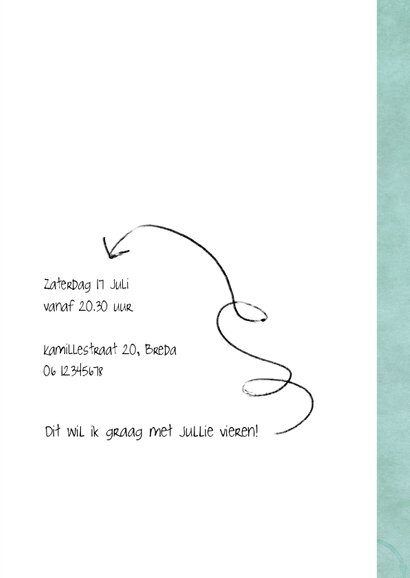 Zaterdag 17 juli
vanaf 20.30 uur
Kamillestraat 20, Breda
06 12345678
Dit wil ik graag met jullie vieren!